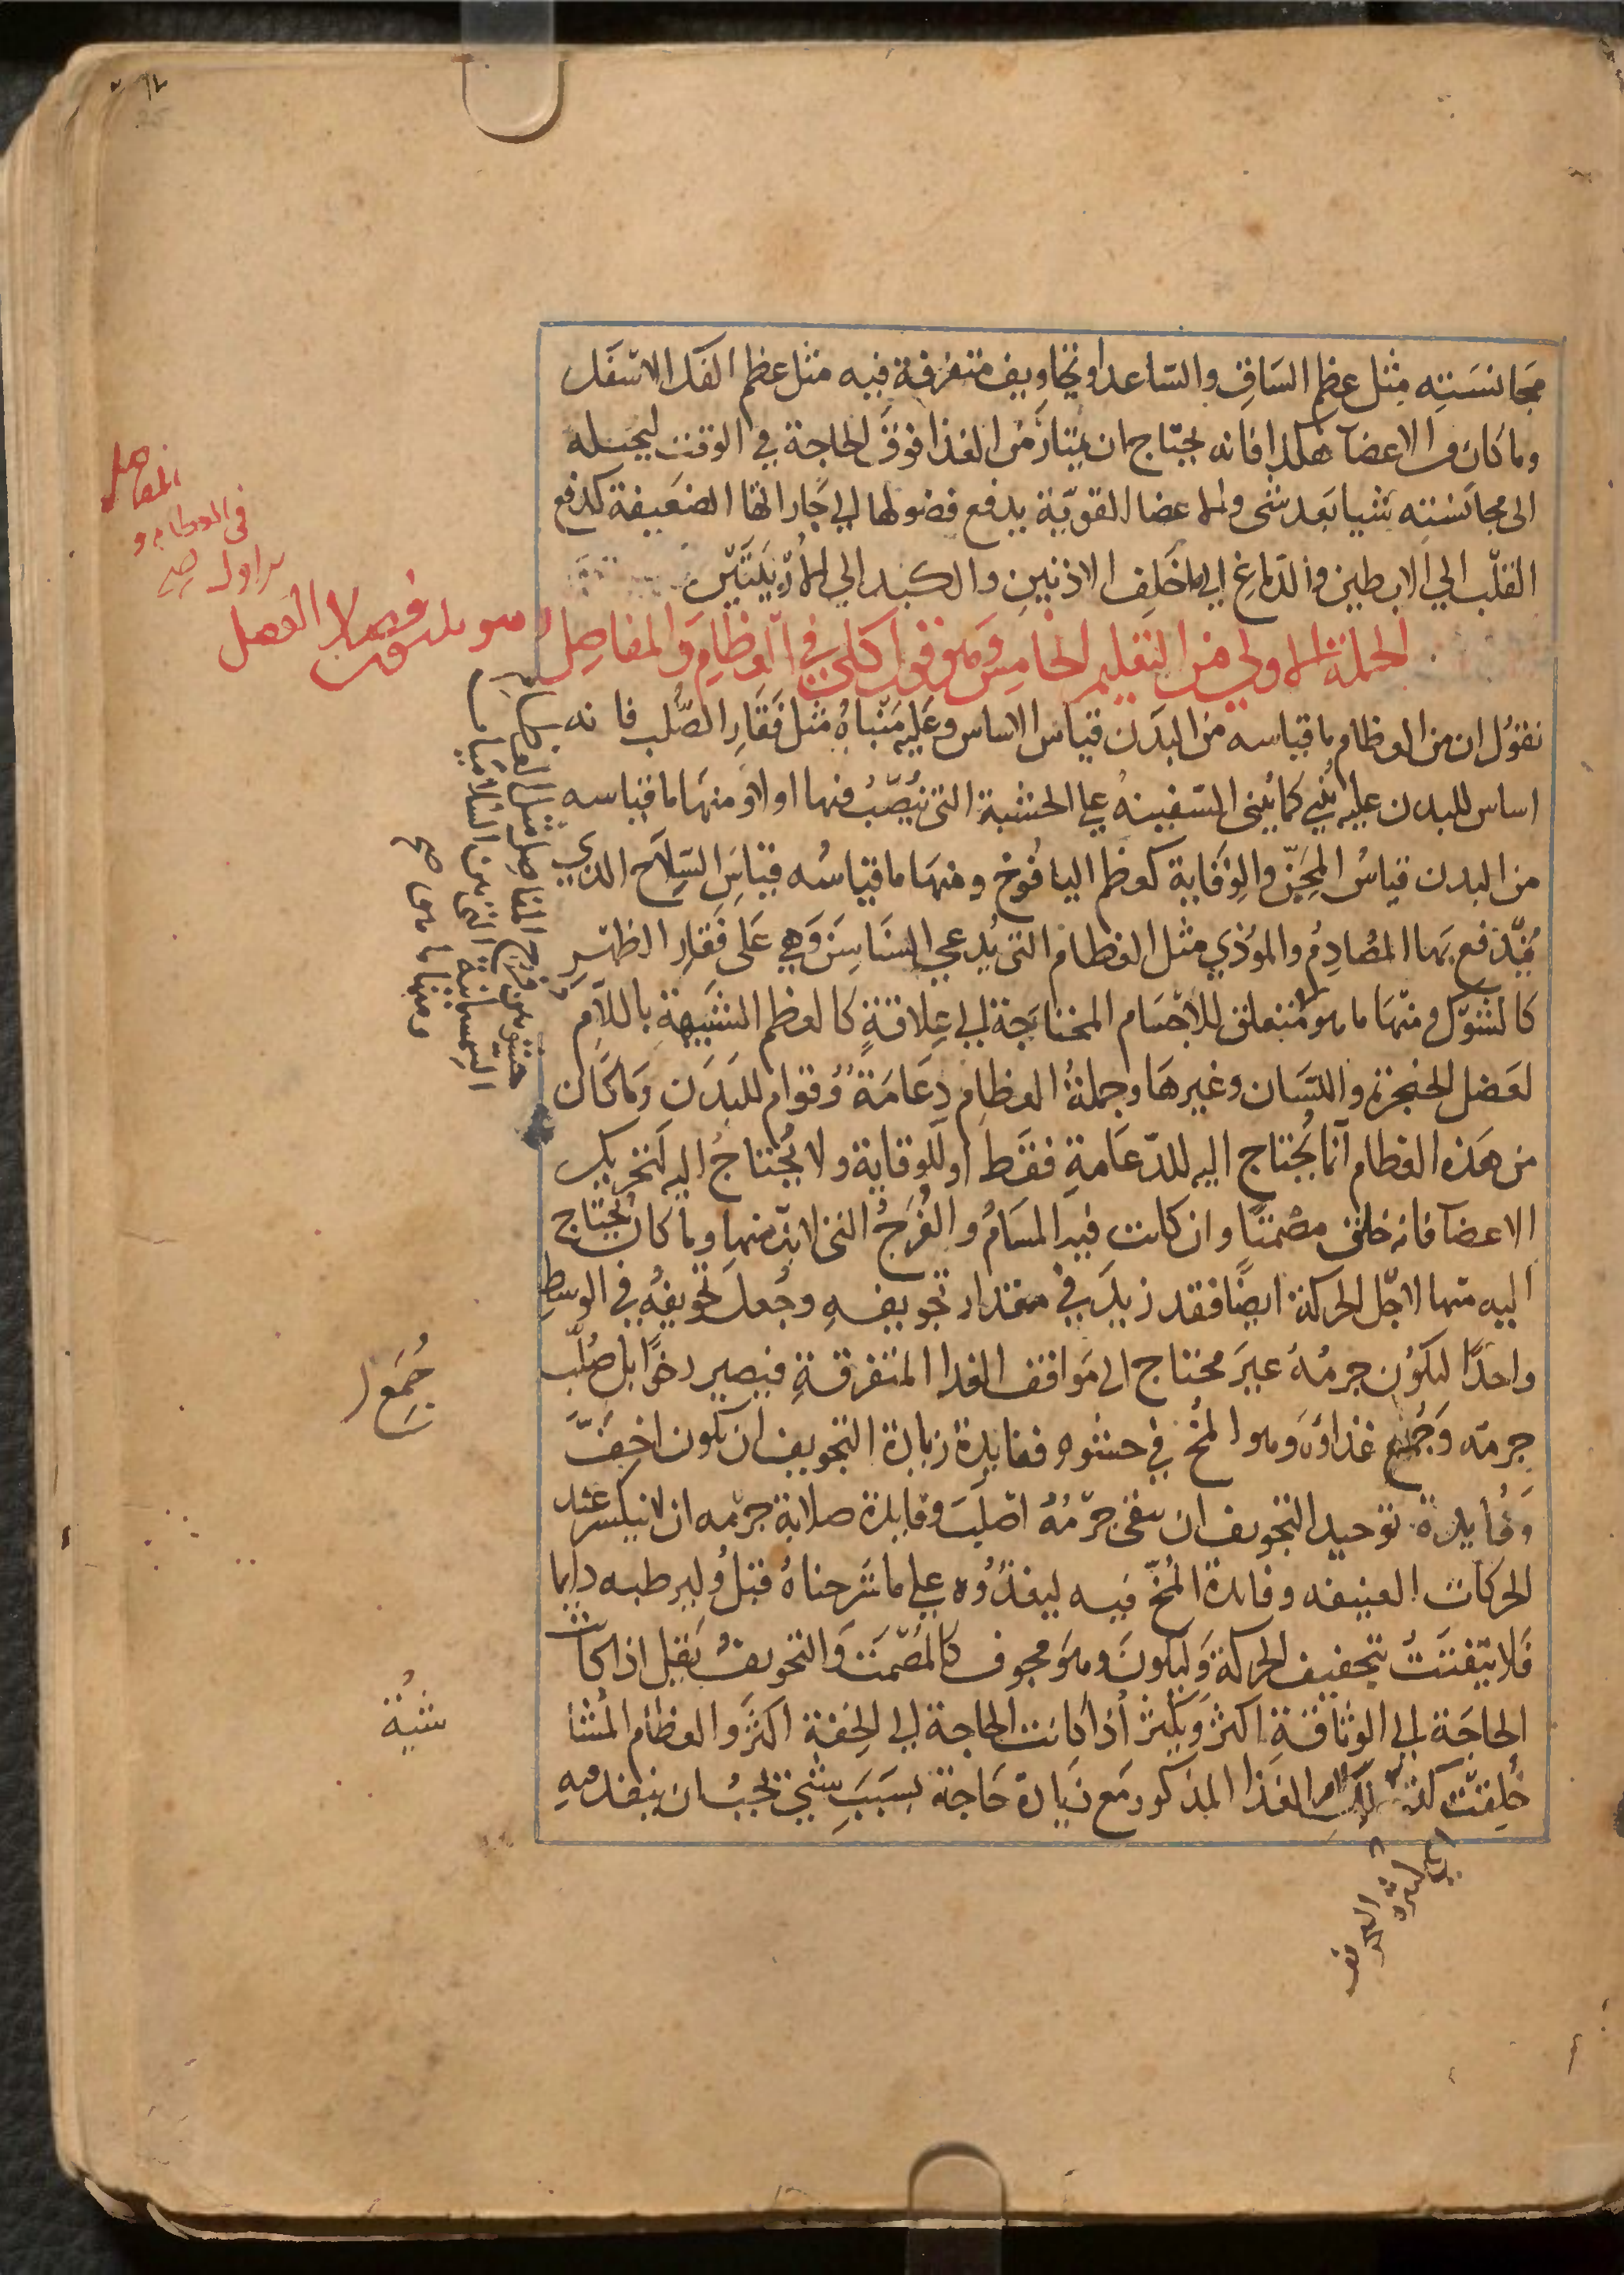 مجانسته مثل عظم الساق والساعد او تجاويف متفرقة فيه مثل عظم الفك الاسفل
وما كان من الاعضآ هكذا فانه يحتاج ان يمتار من الغذا فوق الحاجة في الوقت ليحيله
الى مجانسته شيا بعد شى والاعضا القويّة يدفع فضولها الي جاراتها الضعيفة كدفع
القلب الي الابطين والدماغ الي ما خلف الاذنين والكبد الي الاُرْبيَتَين
الجملة الاولي من التعليم الخامس وهو قول كلي في العظام والمفاصل
نقول ان من العظام ما قياسه من البدن قياس الاساس وعليه مَبناهُ مثل فَقَارِ الصُّلب فانه
اساس للبدن عليه يُبني كما يُبنى السّفينةُ علي الخشبة التى تُنصَبُ فيها اولاً ومنها ما قياسه
من البدن قياسُ المِجَنّ والوِقَاية كعظم اليافُوخ ومنها ما قياسُه قياسَ السّلاح الذي
يُدفع بها المصُادِمُ والموُذي مثل العظام التى يُدعي السنَاسِنَ وَهي عَلى فَقَارِ الظهر
كالشوك ومنها ما هو متعلق للأجسام المحتاجة الي عِلاقةٍ كالعظم الشبيهةِ باللام
لعَضل الحنجرة واللسَان وغيرها وجملةُ العظام دِعَامَةٌ وقوام للبَدَن وَما كَان
من هَذه العظام انما يُحتاج اليه للدّعَامةِ فقَط او للوقاية ولا يُحتاجُ اليه لتحريك
الاعضآ فانه خلق مصْمتاً وان كانت فيه المسَامُ والفُرَجُ التى لابدّ منها وما كان يُحتاج
اليه منها لاجل الحركة ايضًا فقد زيدَ في مقدار تجويفهِ وجُعلَ تجويفُه في الوسط
واحدًا ليكوُن جِرمُهُ غيرَ محتاج الى مَواقف الغدا المتفرقةِ فيصير رخوًا بل صُلّب
جِرمه وَجُمع غذاؤه وهو المُخ في حشوه ففايدة زيادة التجويف ان يكون اخَفَّ
وَفُايدة توحيد التجويف ان يبقى جِرْمُهُ اصْلَبَ وفايدة صلابة جِرْمه ان لا ينكسر عند
الحركات العنيفه وفايدة المُخّ فيه ليغذُوه علي ما شرحناهُ قبلُ وليرطبه دايما
فَلا يتفتت بتجفيف الحركة وَليكونَ وهوَ مجوف كالمُصْمَت والتجويفُ يَقلّ اذا كانت
الحاجَة الي الوَثاقَةِ اكثرَ وَيَكثُر اُذا كانت الحاجة الي الخفة اكثرَ والعظام المُشَا
خُلِقَت كذلك لامر الغذا المذكور مَع زيادة حَاجة بسَبَبَ شيْ يَجبُ ان ينفذ فيهِ
في العظام و
المفاصل
الفصل
حشو بين فرج المفاصل مثل العظام
السمسمانية التي بين السلاميات
ومنها ما هو
صح
جُمَع
شية